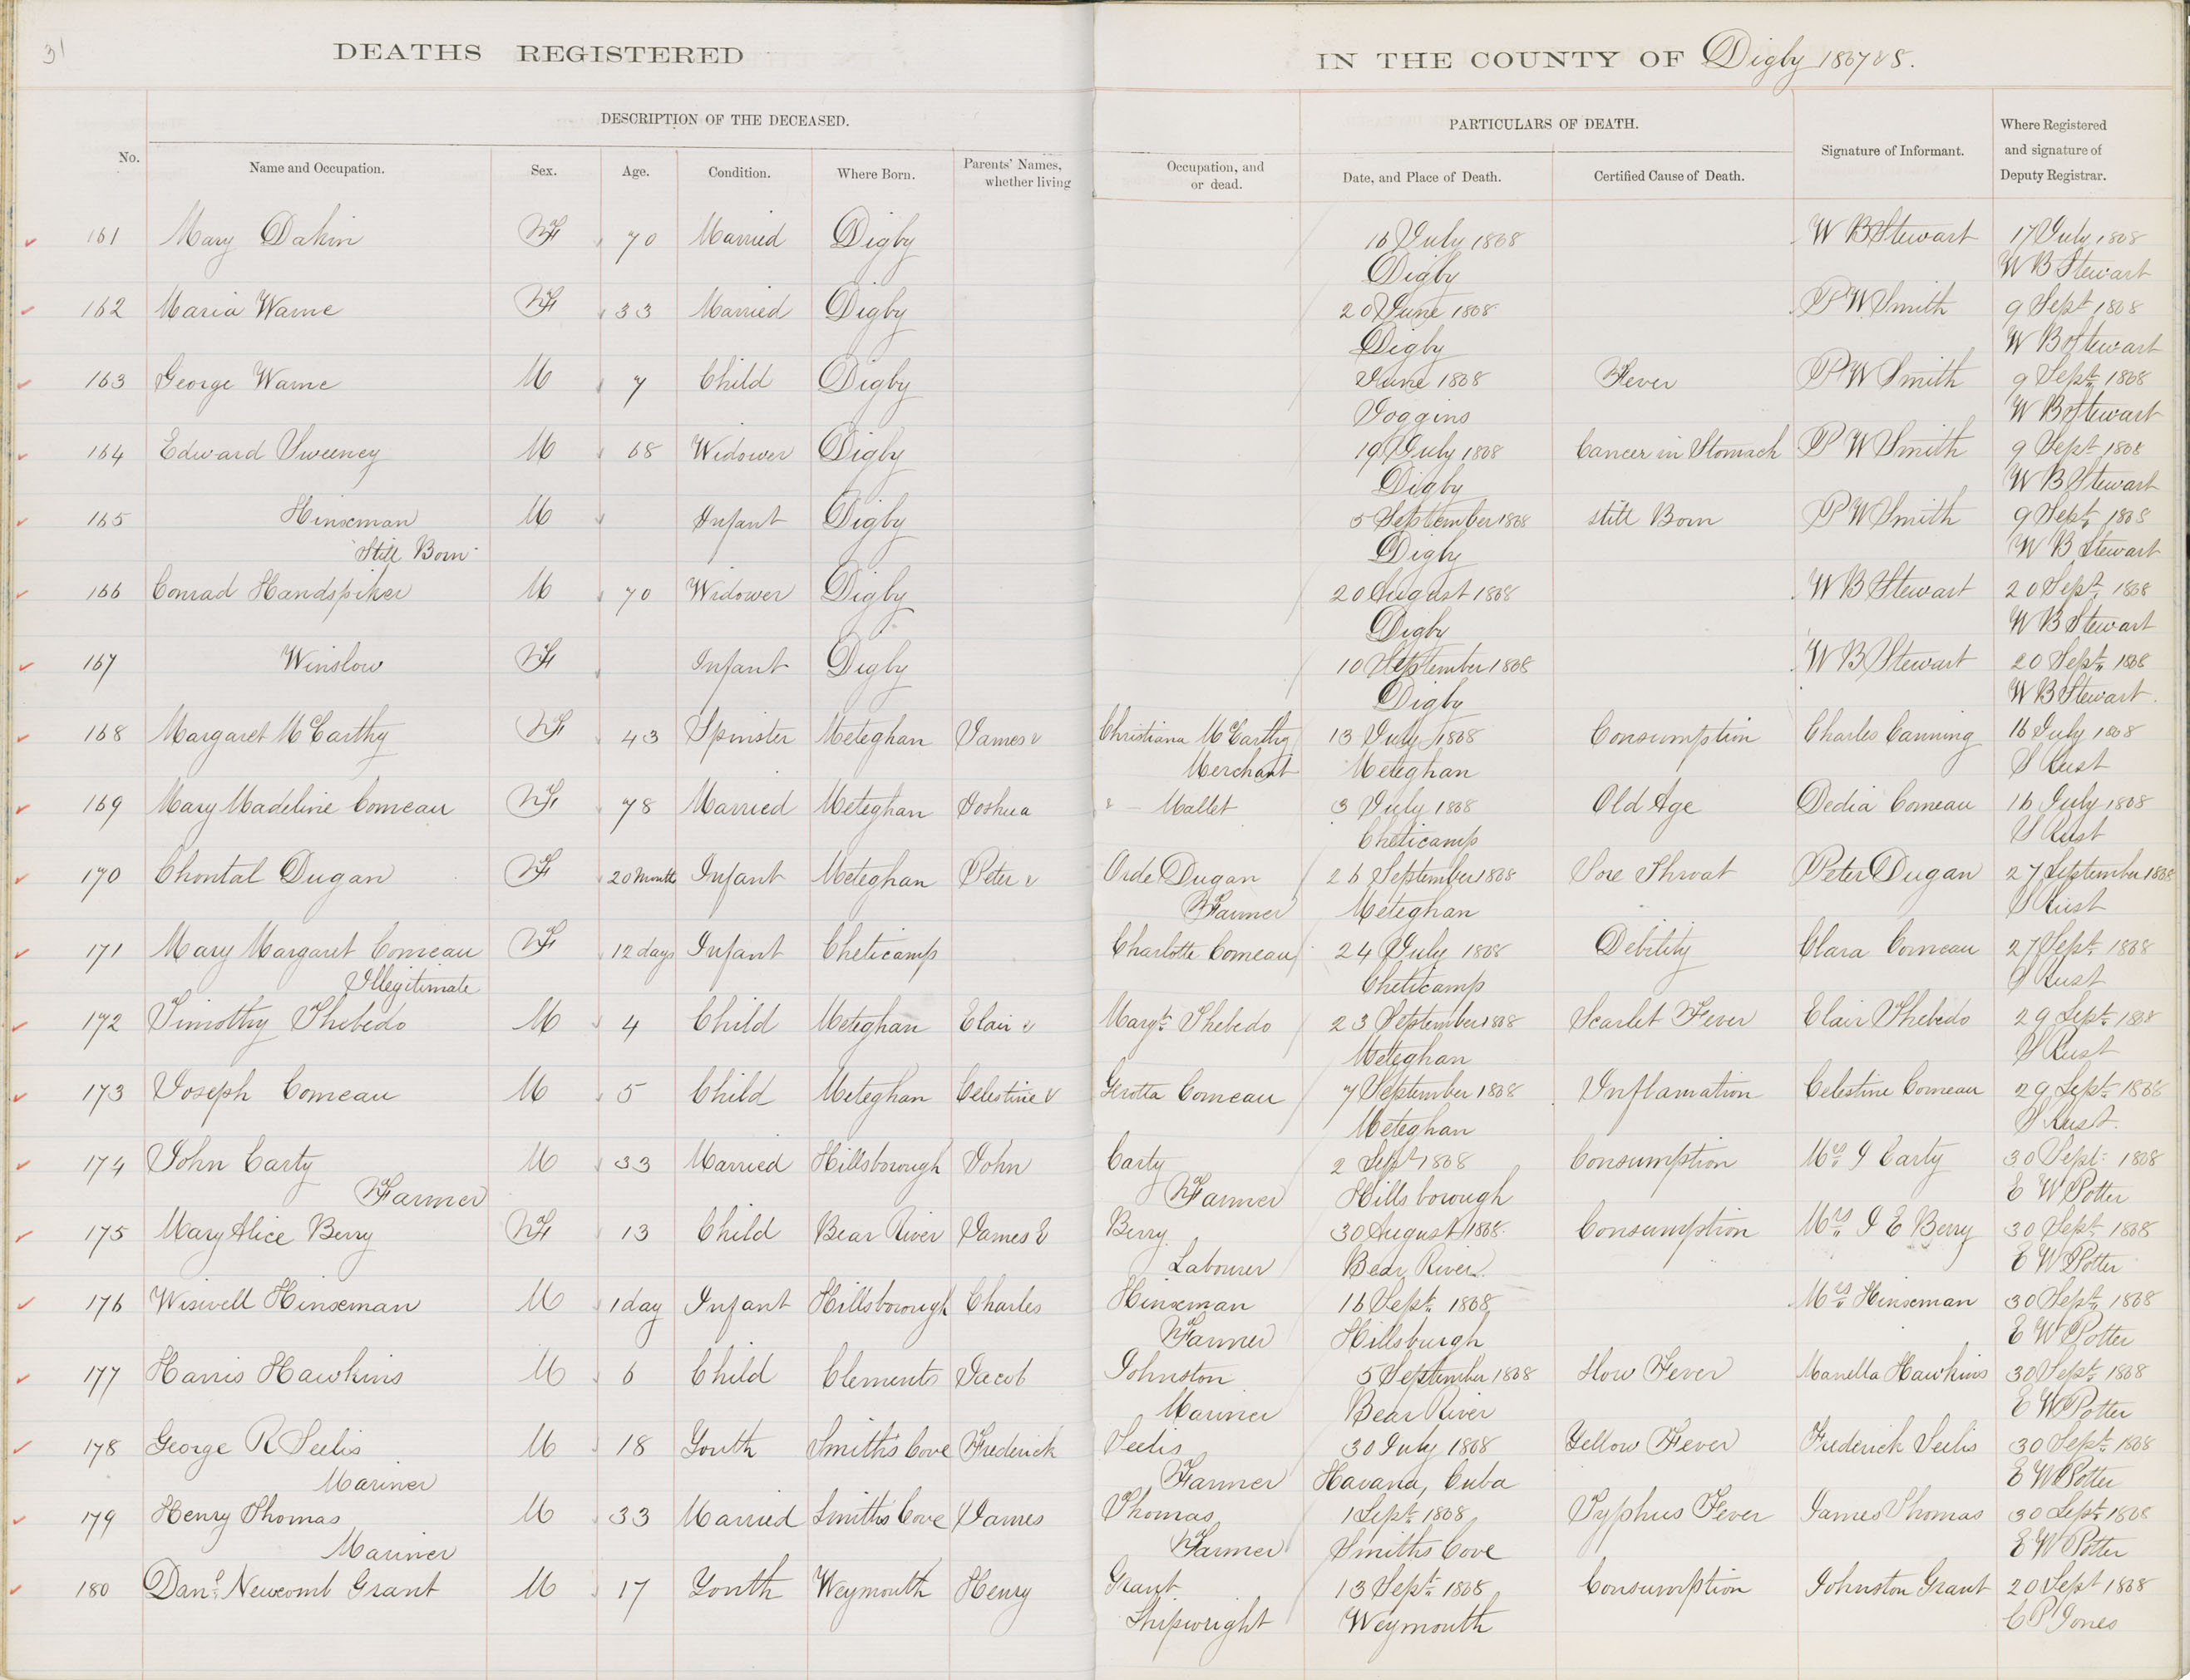 31
DEATHS REGISTERED IN THE COUNTY OF Digby 1867 & 8.
DESCRIPTION OF THE DECEASED. PARTICULARS OF DEATH.
No. Name and Occupation. Sex. Age. Condition. Where Born. Parents' Names, whether living Occupation, and or dead. Date, and Place of Death. Certified Cause of Death. Signature of Informant. Where Registered and signature of Deputy Registrar.
161 Mary Dakin F 70 Married Digby 16 July 1868 W B Stewart 17 July 1868
Digby W B Stewart
162 Maria Warne F 33 Married Digby 20 June 1868 P W Smith 9 Sept 1868
Digby W B Stewart
163 George Warne M 7 Child Digby June 1868 Fever P W Smith 9 Sept. 1868
Joggins W B Stewart
164 Edward Sweeney M 68 Widower Digby 19 July 1868 Cancer in Stomach P W Smith 9 Sept 1868
Digby W B Stewart
165 Hinxman M Infant Digby 5 September 1868 Still Born P W Smith 9 Sept. 1868
"Still Born" Digby W B Stewart
166 Conrad Handspiker M 70 Widower Digby 20 August 1868 W B Stewart 20 Sept. 1868
Digby W B Stewart
167 Winslow F Infant Digby 10 September 1868 W B Stewart 20 Sept. 1868
Digby W B Stewart.
168 Margaret McCarthy F 43 Spinster Meteghan James & Christiana McCarthy 13 July 1868 Consumption Charles Canning 16 July 1868
Merchant Meteghan S Rust
169 Mary Madeline Comeau F 78 Married Meteghan Joshua & — Mallet 3 July 1868 Old Age Dedia Comeau 16 July 1868
Cheticamp S Rust
170 Chontal Dugan F 20 Months Infant Meteghan Peter & Orde Dugan 26 September 1868 Sore Throat Peter Dugan 27 September 1868
Farmer Meteghan S Rust
171 Mary Margaret Comeau F 12 days Infant Cheticamp Charlotte Comeau 24 July 1868 Debility Clara Comeau 27 Sept. 1868
Illegitimate Cheticamp S Rust
172 Timothy Thebedo M 4 Child Meteghan Elair & Margt. Thebedo 23 September 1868 Scarlet Fever Elair Thebedo 29 Sept. 1868
Meteghan S Rust
173 Joseph Comeau M 5 Child Meteghan Celestine & Gerotta Comeau 7 September 1868 Inflamation Celestine Comeau 29 Sept. 1868
Meteghan S Rust.
174 John Carty M 33 Married Hillsborough John Carty 2 Sept 1868 Consumption Mrs. J Carty 30 Sept. 1868
Farmer Farmer Hillsborough E W Potter
175 Mary Alice Berry F 13 Child Bear River James E Berry 30 August 1868. Consumption Mrs. J E Berry 30 Sept. 1868
Labourer Bear River. E W Potter
176 Wiswell Hinxman M 1 day Infant Hillsborough Charles Hinxman 16 Sept. 1868 Mrs. Hinxman 30 Sept. 1868
Farmer Hillsburgh E W Potter
177 Harris Hawkins M 6 Child Clements Jacob Johnston 5 September 1868 Slow Fever Manella Hawkins 30 Sept. 1868
Mariner Bear River E W Potter
178 George R Seelis M 18 Youth Smith's Cove Frederick Seelis 30 July 1868 Yellow Fever Frederick Seelis 30 Sept. 1868
Mariner Farmer Havana, Cuba E W Potter
179 Henry Thomas M 33 Married Smiths Cove James Thomas 1 Sept. 1868 Typhus Fever James Thomas 30 Sept. 1868
Mariner Farmer Smiths Cove E W Potter
180 Danl. Newcomb Grant M 17 Youth Weymouth Henry Grant 13 Sept. 1868 Consumption Johnston Grant 20 Sept 1868
Shipwright Weymouth C P Jones